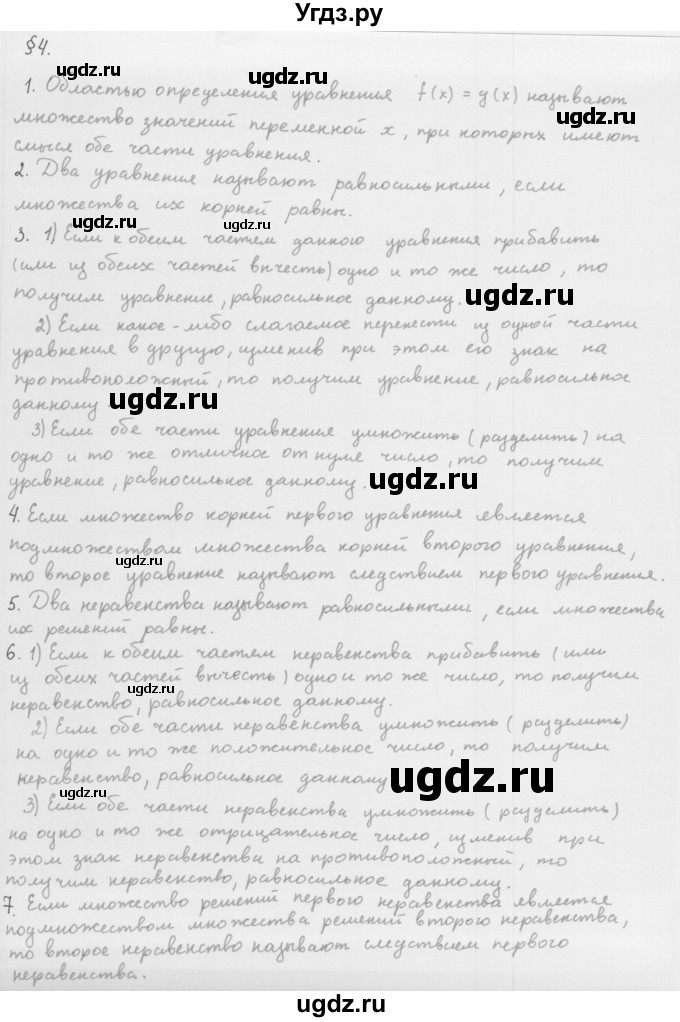 Угдз.ру
§4.
1. Областью определения уравнения f(x) = g(x) называют
множество значений переменной x, при которых имеют
смысл обе части уравнения.
ugdz.ru
2. Два уравнения называют равносильными, если
множества их корней равны.
ugdz.ru
ugdz.ru
3. 1) Если к обеим частям данного уравнения прибавить
(или из обеих частей вычесть) одно и то же число, то
получим уравнение, равносильное данному.
ugdz.ru
2) Если какое-либо слагаемое перенести из одной части
уравнения в другую, изменив при этом его знак на
противоположный, то получим уравнение, равносильное
данному
ugdz.ru
3) Если обе части уравнения умножить (разделить) на
одно и то же отличное от нуля число, то получим
уравнение, равносильное данному.
ugdz.ru
4. Если множество корней первого уравнения является
подмножеством множества корней второго уравнения,
ugdz.ru
то второе уравнение называют следствием первого уравнения.
5. Два неравенства называют равносильными, если множества
их решений равны.
ugdz.ru
6. 1) Если к обеим частям неравенства прибавить (или
из обеих частей вычесть) одно и то же число, то получим
ugdz.ru
неравенство, равносильное данному.
2) Если обе части неравенства умножить (разделить)
ugdz.ru
на одно и то же положительное число, то получим
неравенство, равносильное данному
ugdz.ru
3) Если обе части неравенства умножить (разделить)
ugdz.ru
на одно и то же отрицательное число, изменив при
этом знак неравенства на противоположный, то
получим неравенство, равносильное данному.
ugdz.ru
7. Если множество решений первого неравенства является
подмножеством множества решений второго неравенства,
то второе неравенство называют следствием первого
ugdz.ru
неравенства.
ugdz.ru